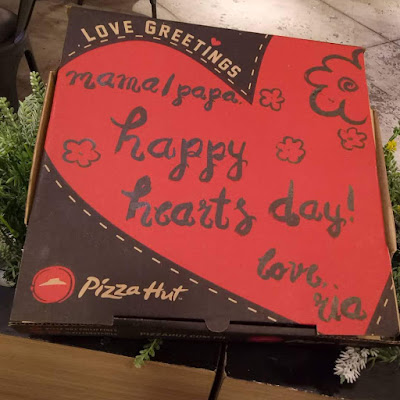 LOVE GREETINGS
mama/papa
happy
hearts day!
love,
ria
Pizza Hut